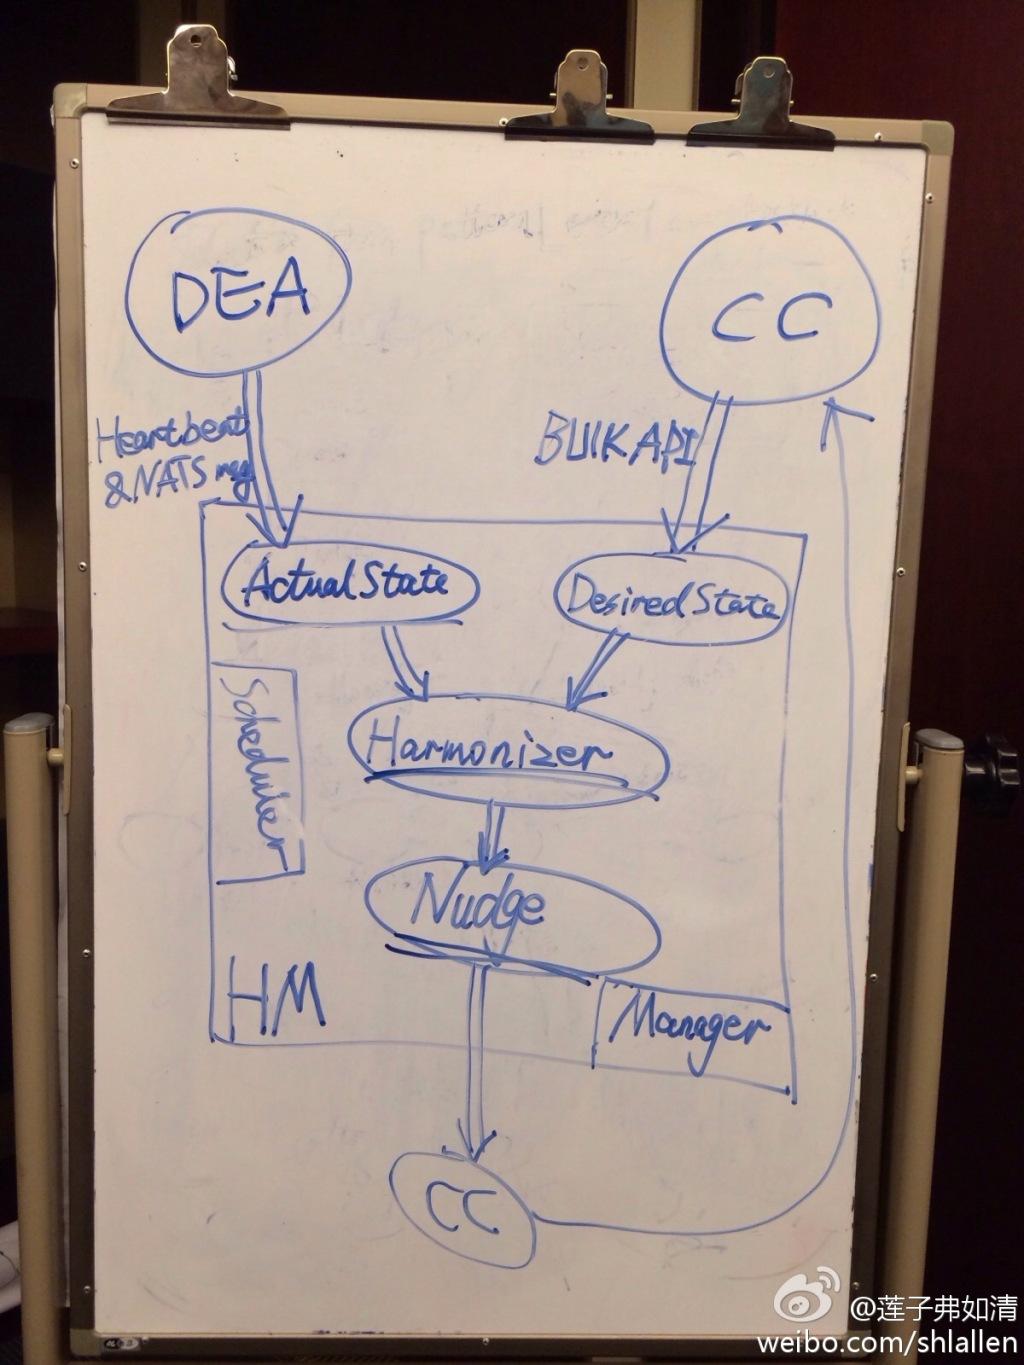 DEA
CC
Heartbeat
& NATS msg
BUlK API
Actual State
Desired State
Scheduler
Harmonizer
Nudge
HM
Manager
CC
@莲子弗如清
weibo.com/shlallen